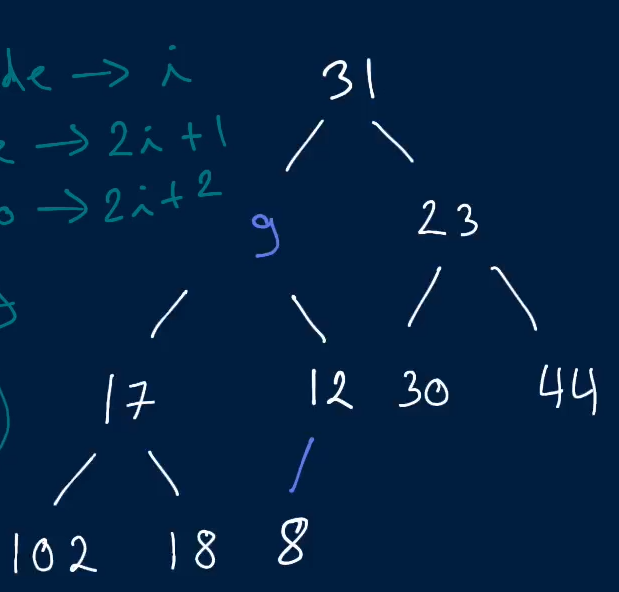 31
de → i
→ 2i+1
→ 2i+2
9
23
17
12
30
44
102
18
8